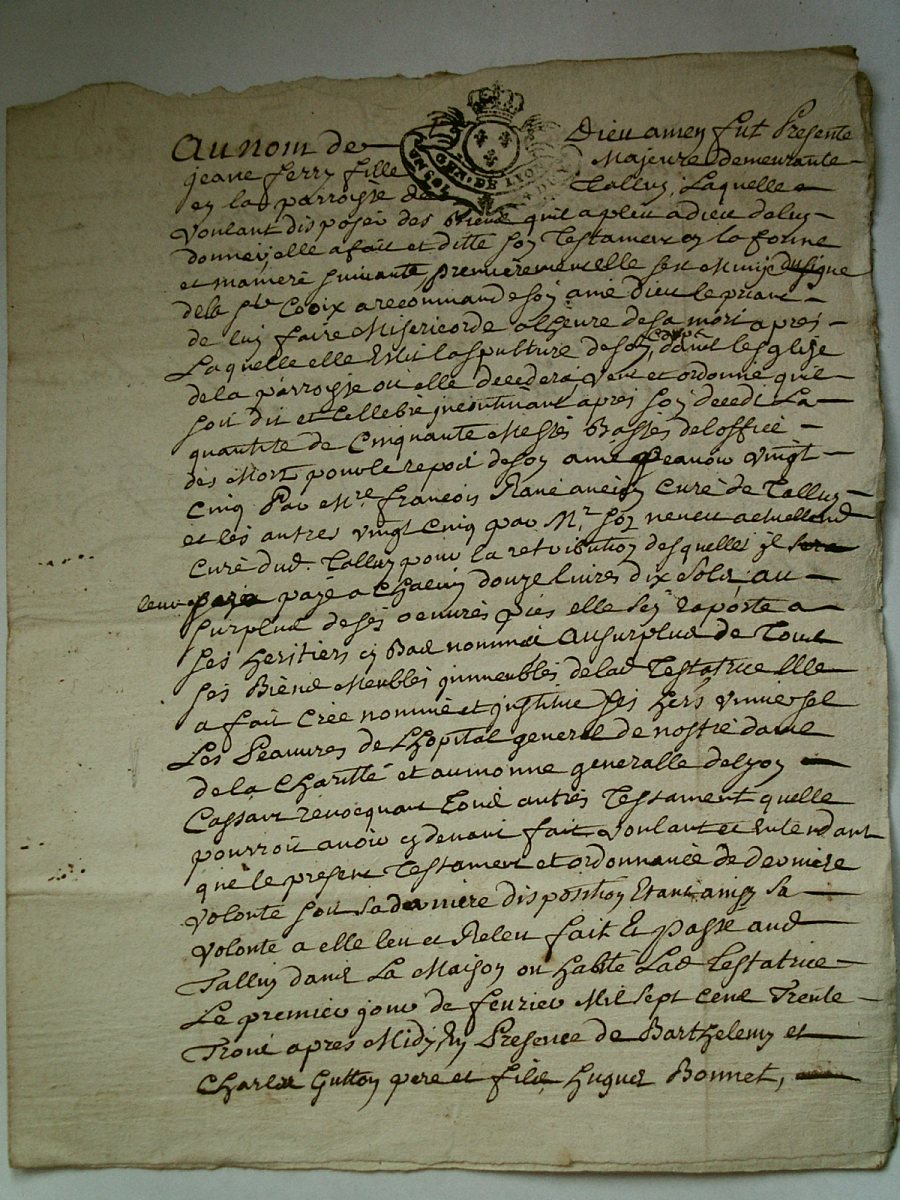 Au nom de Dieu amen fut Presente
jeane ferry fille Majeure demeurante
en la parroisse de Talluy, Laquelle
voulant disposer des Biens quil a pleu a dieu de luy
donner, elle a fait et ditte son Testament en la forme
et maniere suivante, premierement elle sest Munie du signe
de la Ste Croix a recommande son ame dieu le priant
de luy faire Misericorde a lheure de sa mort apres
Laquelle elle Eslit la spulture de son corps dans lesglise
de la parroisse ou elle decedera, veut et ordonne quil
soit dit et cellebré incontinant apres son deced La
quantité de Cinquante Messes Basses de loffice
des Mort pour le repod de son ame vingt
Cinq Par Mre françois Rané ancien Curé de Talluy
et les autres vingt cinq par Mr son neveu actuellemt
Curé dud. Talluy pour la retribution desquelles il sera
leur payé a Chacun douze livres dix sols, au
surplus de ses oeuvres pies elle sen raporte a
ses heritiers cy Bas nommés Au surplus de Tous
ses Biens Meubles inmeubles de lad Testatrice Elle
a fait Créé nommé et institué ses hers universel
Les Peauvres de Lhopital general de nostre dame
de la Charitté et aumonne generalle de Lyon
Cassant revocquant Tous autres Testament quelle
pourroit avoir cy devant fait voulant et Entendant
que le present Testament et ordonnance de derniere
volonté soit sa derniere disposition Etant ainsy sa
volonté a elle leu et Releu fait Et passé aud
Talluy dans La Maison ou habite Lad Testatrice
Le premier jour de fevrier Mil sept cens Trente
Trois apres Midy En Presence de Barthelemy et
Charles Gutton pere et fils, hugues Bonnet,
GEN. DE LION